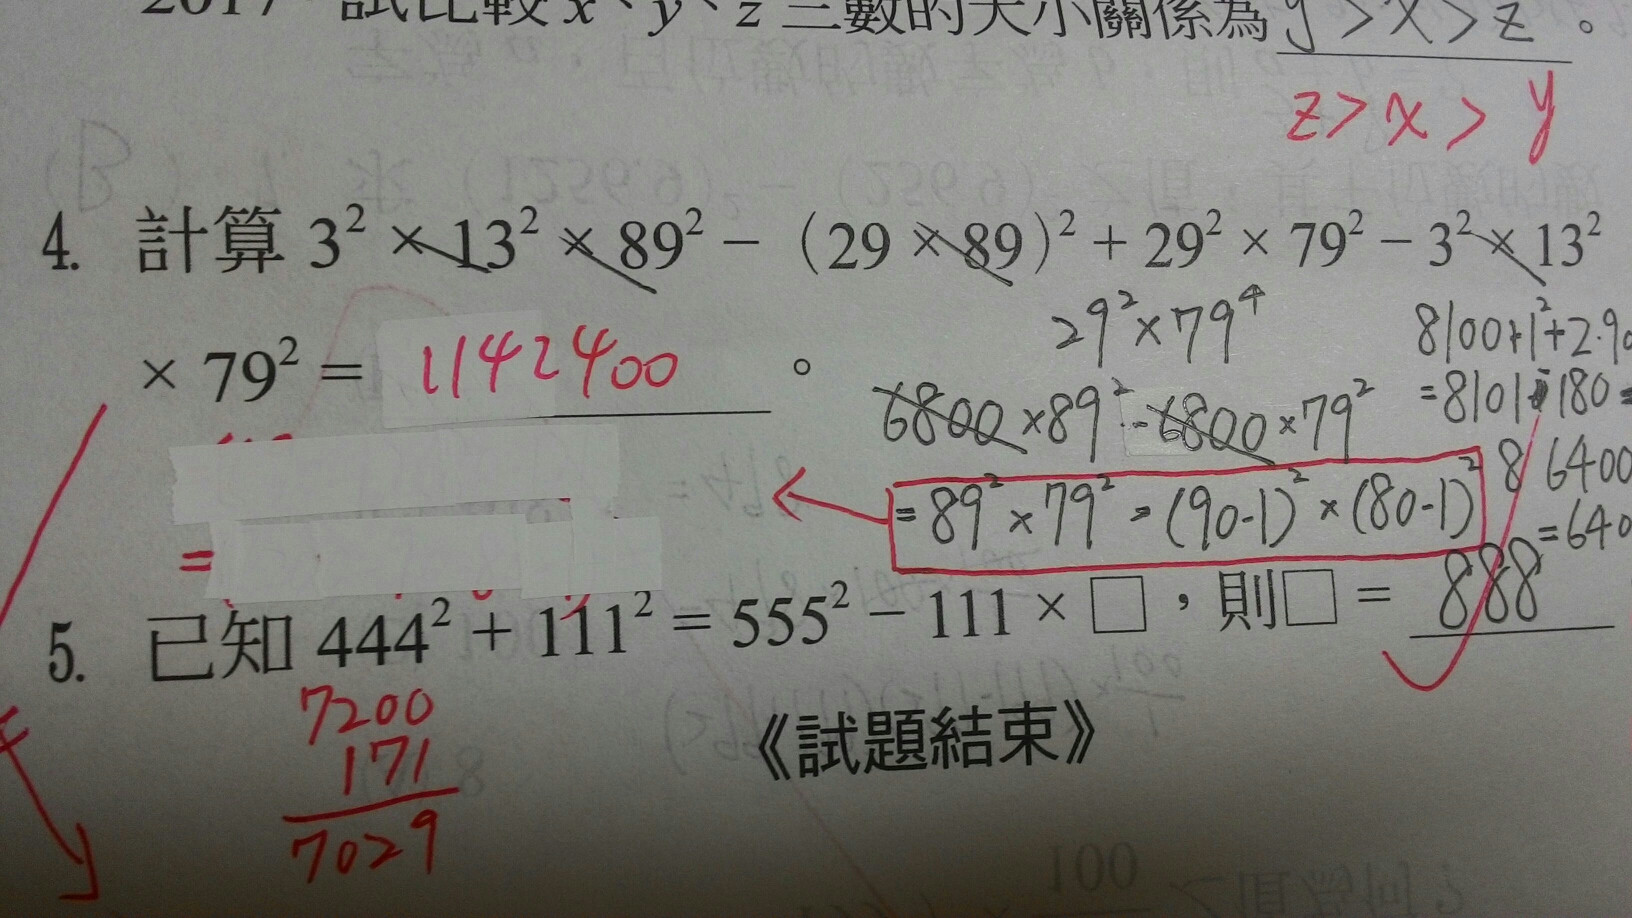 2017，試比較 x、y、z 三數的大小關係為 y > x > z 。
z > x > y
4. 計算 3² × 13² × 89² − （29 × 89）² + 29² × 79² − 3² × 13²
× 79² = 1142400 。
29² × 79⁴
8100+1²+2·90
6800 × 89² - 6800 × 79²
= 8101 - 180 =
= 89² × 79² = (90-1)² × (80-1)²
8 6400
= 640
=
5. 已知 444² + 111² = 555² − 111 × □，則□ = 888
7200
171
7029
《試題結束》